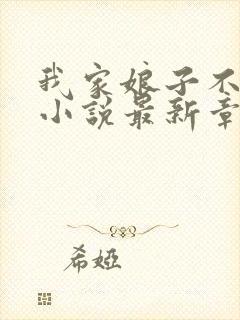 我家娘子不
小说最新章
希婭